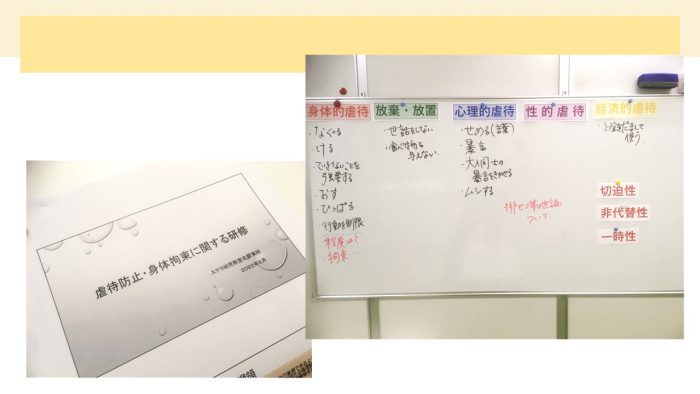 虐待防止・身体拘束に関する研修
2022年6月
身体的虐待
放棄・放置
心理的虐待
性的虐待
経済的虐待
・なぐる
・ける
・できないことを
強要する
・おす
・ひっぱる
・行動の制限
・拘束…
・世話をしない
・食べ物を
与えない
・せめる(言葉)
・暴言
・大人同士の
暴言をきかせる
・ムシする
ついて
・お金をだまして
使う
切迫性
非代替性
一時性